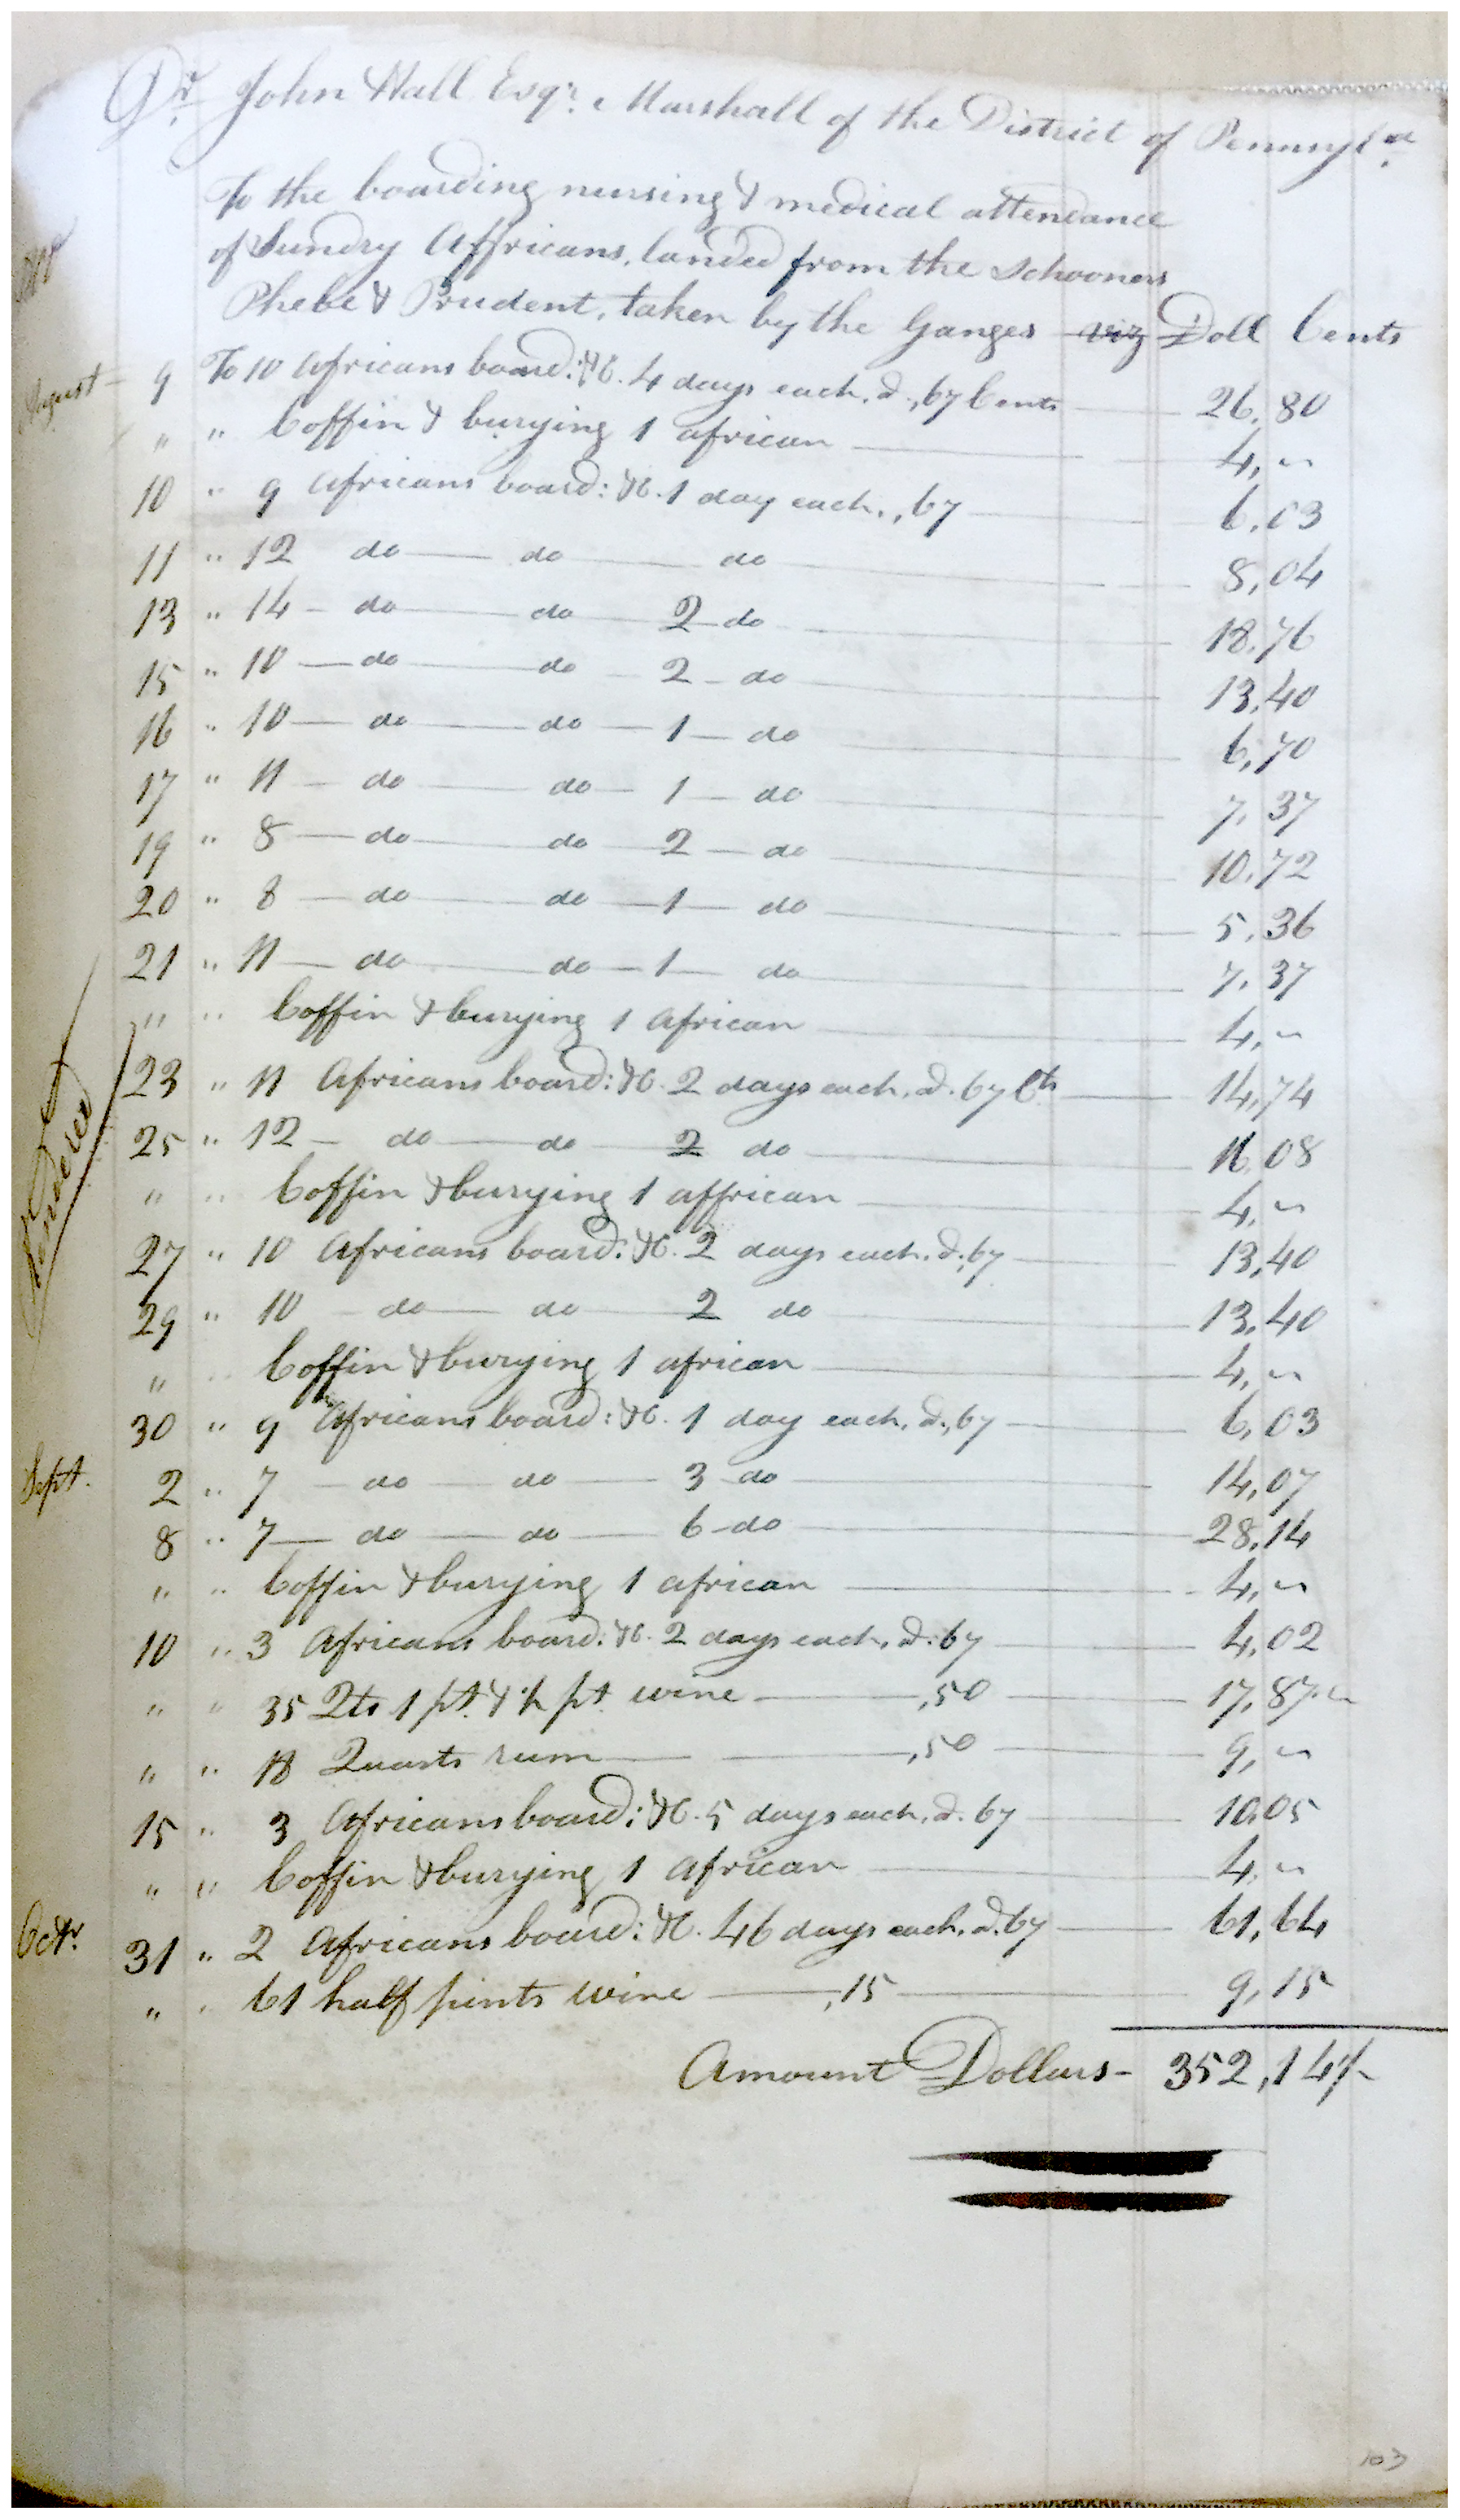 Dr. John Hall Esqr. Marshall of the District of Pennsyla.
To the boarding nursing & medical attendance
of Sundry Africans, landed from the Schooners
Phebe & Prudent, taken by the Ganges viz Doll Cents
August 9 To 10 Africans board: &c. 4 days each, @ ,67 Cents 26,80
" " Coffin & burying 1 african 4,~
10 " 9 Africans board: &c. 1 day each, ,67 6,03
11 " 12 do do do 8,04
13 " 14 do do 2 do 18,76
15 " 10 do do 2 do 13,40
16 " 10 do do 1 do 6,70
17 " 11 do do 1 do 7,37
19 " 8 do do 2 do 10,72
20 " 8 do do 1 do 5,36
21 " 11 do do 1 do 7,37
" " Coffin & burying 1 African 4,~
23 " 11 Africans board: &c. 2 days each, @. 67 Cts 14,74
25 " 12 do do 2 do 16,08
" " Coffin & burying 1 affrican 4,~
27 " 10 Africans board: &c. 2 days each, @ ,67 13,40
29 " 10 do do 2 do 13,40
" " Coffin & burying 1 african 4,~
30 " 9 Africans board: &c. 1 day each, @ ,67 6,03
Sept. 2 " 7 do do 3 do 14,07
8 " 7 do do 6 do 28,14
" " Coffin & burying 1 african 4,~
10 " 3 Africans board: &c. 2 days each, @ ,67 4,02
" " 35 Qts 1 pt. & ½ pt. wine ,50 17,87½
" " 18 Quarts rum ,50 9,~
15 " 3 Africans board: &c. 5 days each, @. 67 10,05
" " Coffin & burying 1 African 4,~
Octr. 31 " 2 Africans board: &c. 46 days each, @. 67 61,64
" " 61 half pints wine ,15 9,15
Amount Dollars 352,14½
103